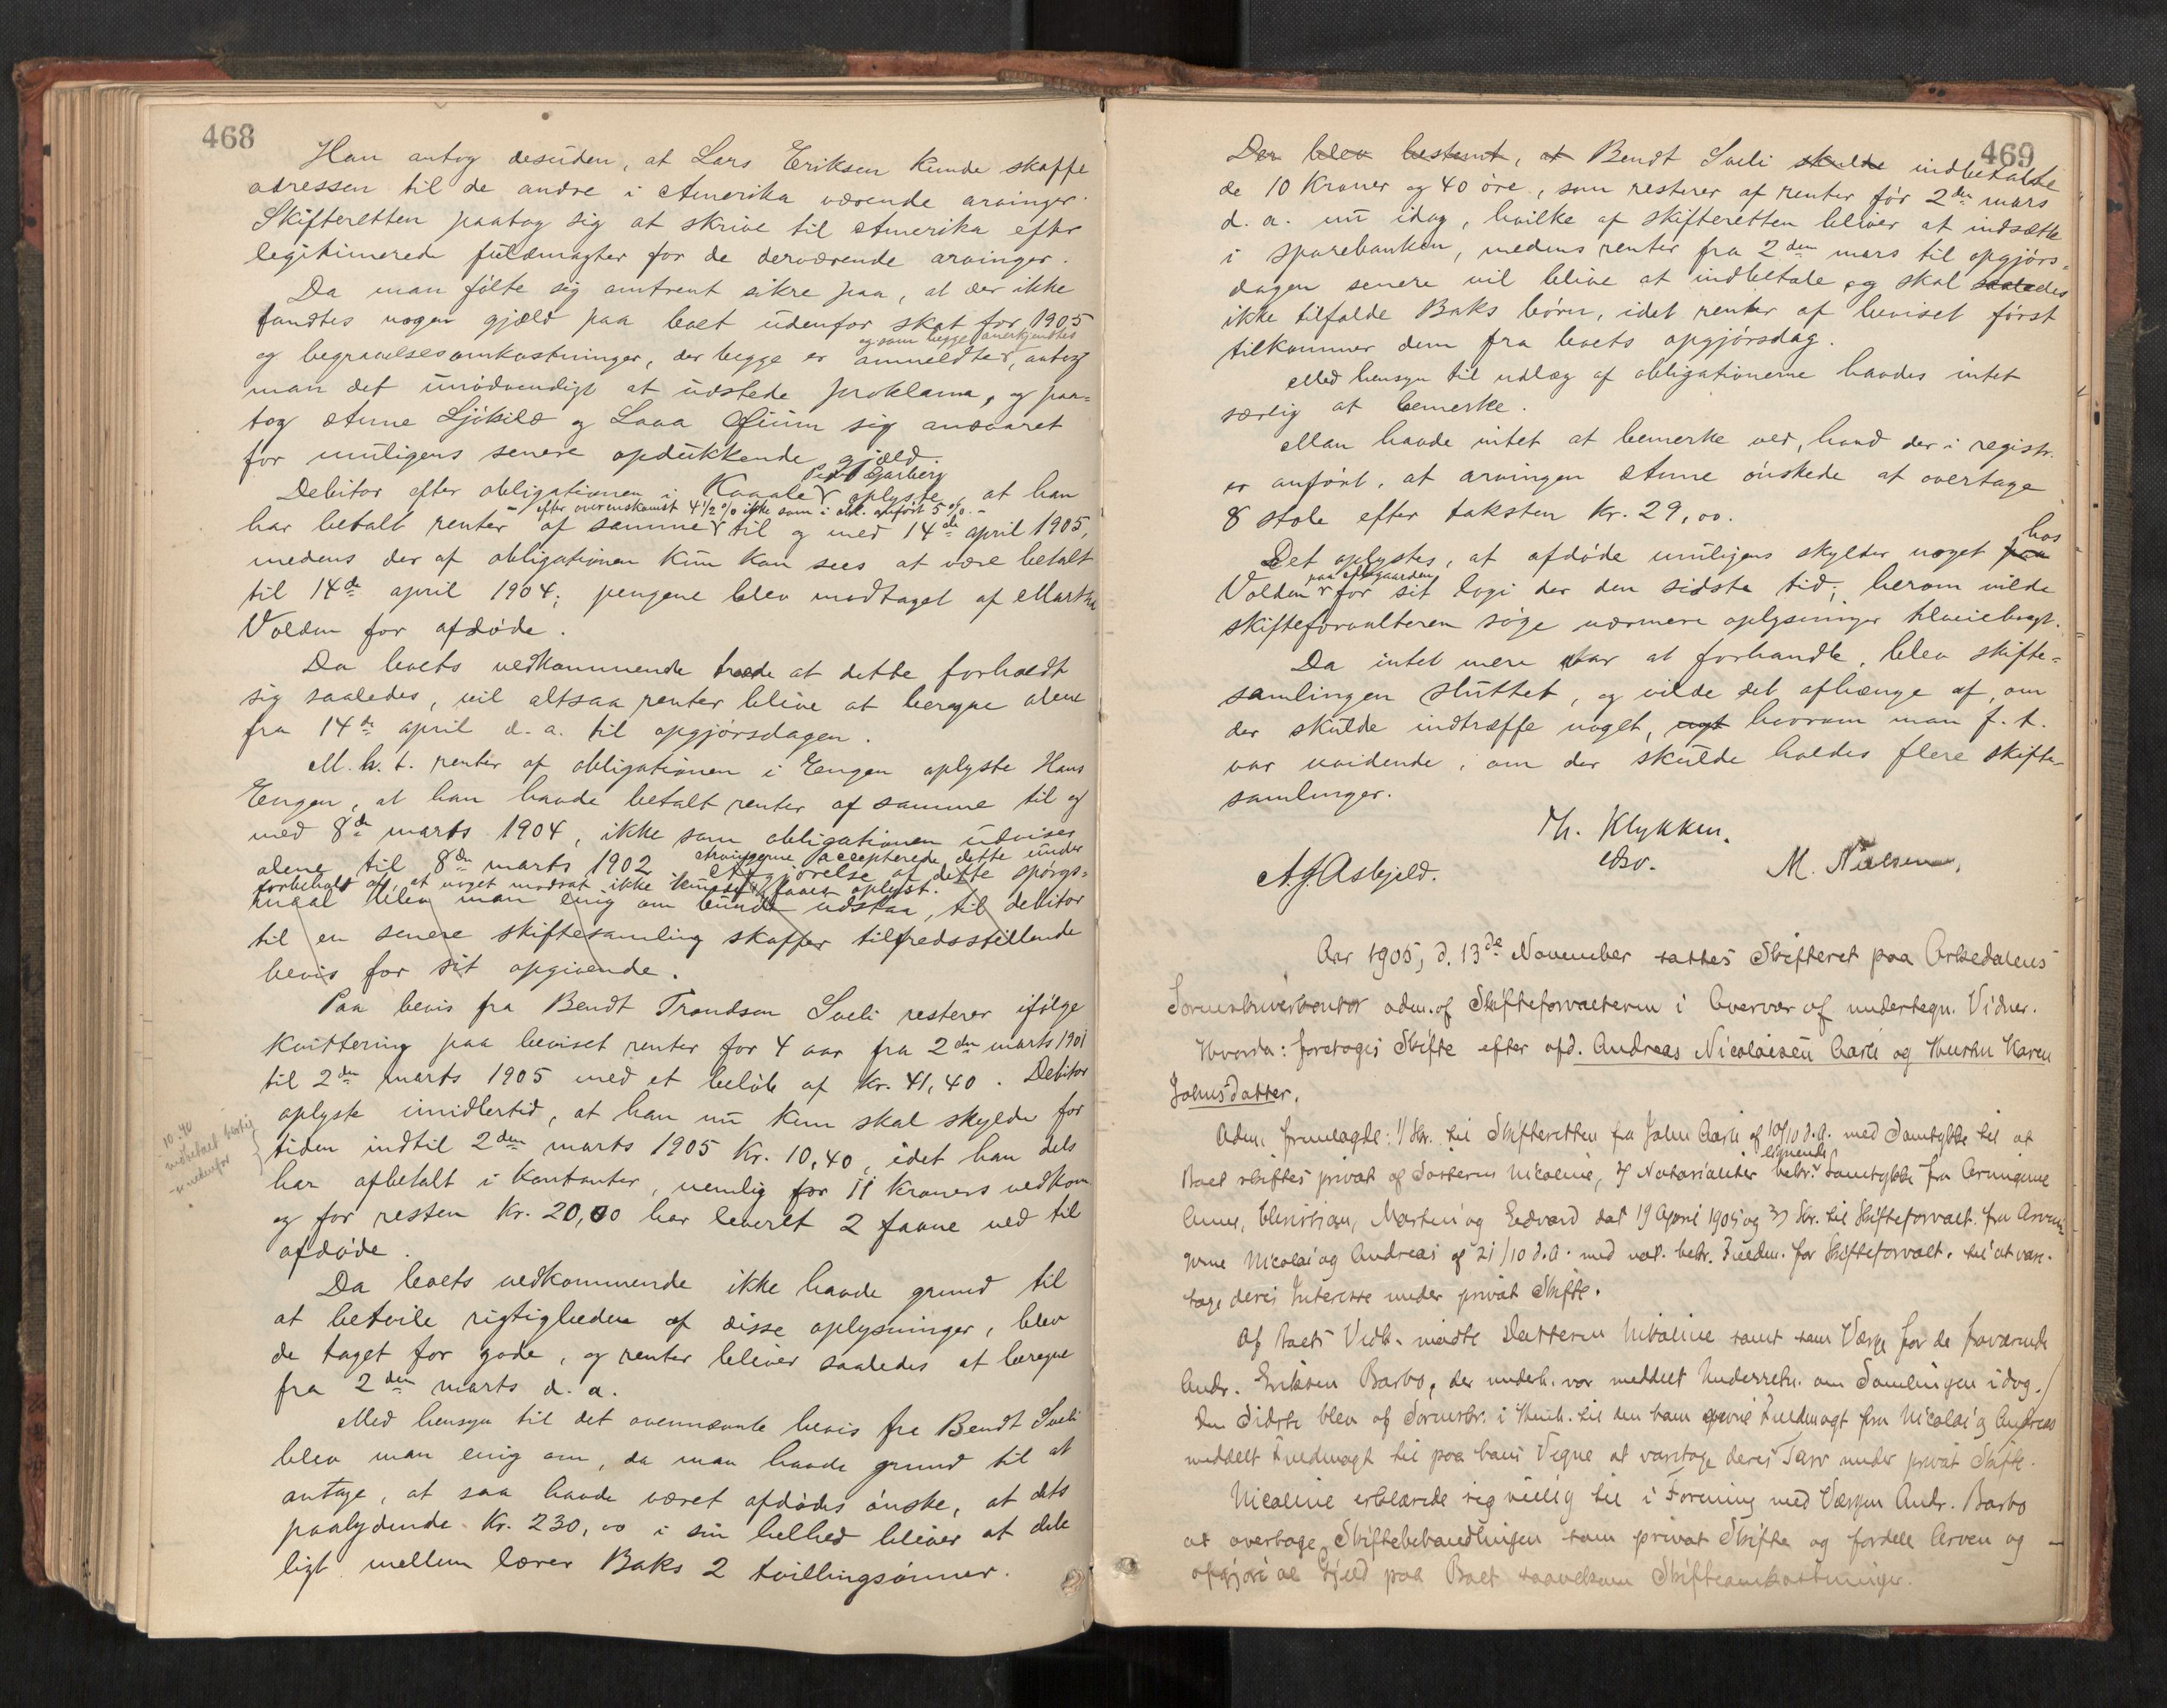 468
Han antog desuden, at Lars Eriksen kunde skaffe
adressen til de andre i Amerika værende arvinger.
Skifteretten paatog sig at skrive til Amerika efter
legitimerede fuldmagter for de derværende arvinger.
Da man følte sig omtrent sikre paa, at der ikke
fandtes nogen gjæld paa boet udenfor skat for 1905
og som begge anerkjendtes
og begravelsesomkostninger, der begge er anmeldte, antog
man det unødvendigt at udstede proklama, og paa-
tog Anne Ljøkild og Lava sig ansvaret
for muligens senere opdukkende gjæld.
Peder Garberg
Debitor efter obligationen i Kaaale oplyste, at han
efter overenskomst 4 1/2 % ikke som i obl. anført 5 %.
har betalt renter af samme til og med 14de april 1905,
medens der af obligationen kun kan sees at være betalt
til 14de april 1904; pengene blev modtaget af Marthe
Volden for afdøde.
Da boets vedkommende troede at dette forholdt
sig saaledes, vil altsaa renter blive at beregne alene
fra 14de april d. a. til opgjørsdagen.
M. h. t. renter af obligationen i Engen oplyste Hans
Engen, at han havde betalt renter af samme til og
med 8de marts 1904, ikke som obligationen udviser
alene til 8de marts 1902. Arvingerne accepterede dette under
Afgjørelse af dette spørgs-
forbehold af, at noget modsat ikke kunde faaes oplyst.
maal blev man enig om kunde udstaa, til debitor
til en senere skiftesamling skaffer tilfredsstillende
bevis for sit opgivende.
Paa bevis fra Bendt Trondsen Sveli resterer ifølge
kvittering paa beviset renter for 4 aar fra 2den marts 1901
til 2den marts 1905 med et beløb af Kr. 41,40. Debitor
oplyste imidlertid, at han nu kun skal skylde for
10.40
tiden indtil 2den marts 1905 Kr. 10,40, idet han dels
har afbetalt i kontanter, nemlig for 11 kroners vedkom
og for resten Kr. 20,00 har leveret 2 favne ved til
afdøde.
Da boets vedkommende ikke havde grund til
at betvile rigtigheden af disse oplysninger, blev
de taget for gode, og renter bliver saaledes at beregne
fra 2den marts d. a.
Med hensyn til det ovennævnte bevis fra Bendt Sveli
blev man enig om, da man havde grund til at
antage, at saa havde været afdødes ønske, at dets
paalydende Kr. 230,00 i sin helhed bliver at dele
ligt mellem lærer Baks 2 tvillingsønner.
469
Der blev bestemt, at Bendt Sveli skulde indbetalte
de 10 Kroner og 40 øre, som resterer af renter før 2den mars
d. a. nu idag, hvilke af skifteretten bliver at indsætte
i sparebanken, medens renter fra 2den mars til opgjørs-
dagen senere vil blive at indbetale, og skal saaledes
ikke tilfalde Baks børn, idet renter af beviset først
tilkommer dem fra boets opgjørsdag.
Med hensyn til udlæg af obligationerne havdes intet
særlig at bemerke.
Man havde intet at bemerke ved, hvad der i registr.
er anført, at arvingen Anne ønskede at overtage
8 stole efter taksten Kr. 29,00.
hos
Det oplystes, at afdøde muligens skylder noget fra
Volden for sit logi der den sidste tid; herom vilde
skifteforvalteren søge nærmere oplysninger tilveiebragt.
Da intet mere var at forhandle, blev skifte-
samlingen sluttet, og vilde det afhænge af, om
der skulde indtræffe noget, hvorom man f. t.
var uvidende, om der skulde holdes flere skifte-
samlinger.
Th. Klykken.
A. J. Asbjeld.
M. Nielsen,
Aar 1905, d. 13de November sattes Skifteret paa Orkedalens
Sorenskriverkontor adm. af Skifteforvalteren i Overvær af undertegn. Vidner.
Hvorda: foretoges Skifte efter afd. Andreas Nicolaisen Aarli og Hustru Karen
Johnsdatter.
Adm. fremlagde: 1) Skr. til Skifteretten fra John Aarli af 10/10 d. A. med Samtykke til at
lignende
Boet skiftes privat af Søsteren Nicoline, 2) Notarialiter bekr. Samtykke fra Arvingerne
Anne, Christian, Martin og Edvard dat 19 April 1905 og 3) Skr. til Skifteforvalt. fra Arvin-
gerne Nicolai og Andreas af 21/10 d. A. med not. bekr. Fuldm. for Skifteforvalt. til at vare-
tage deres Interesse under privat Skifte.
Af Boets Vedk. mødte Datteren Nicoline samt som Værge for de fraværende
Andr. Eriksen Barbo, der underh. var meddelt Underretn. om Samlingen idag.
Den Sidste blev af Sorenskr. i Henh. til den ham givne Fuldmagt fra Nicolai og Andreas
meddelt Fuldmagt til paa hans Vegne at varetage deres Tarv under privat Skifte.
Nicoline erklærede sig villig til i Forening med Værgen Andr. Barbo
at overtage Skiftebehandlingen som privat Skifte og fordele Arven og
opgjøre al Gjæld paa Boet saavelsom Skifteomkostninger.